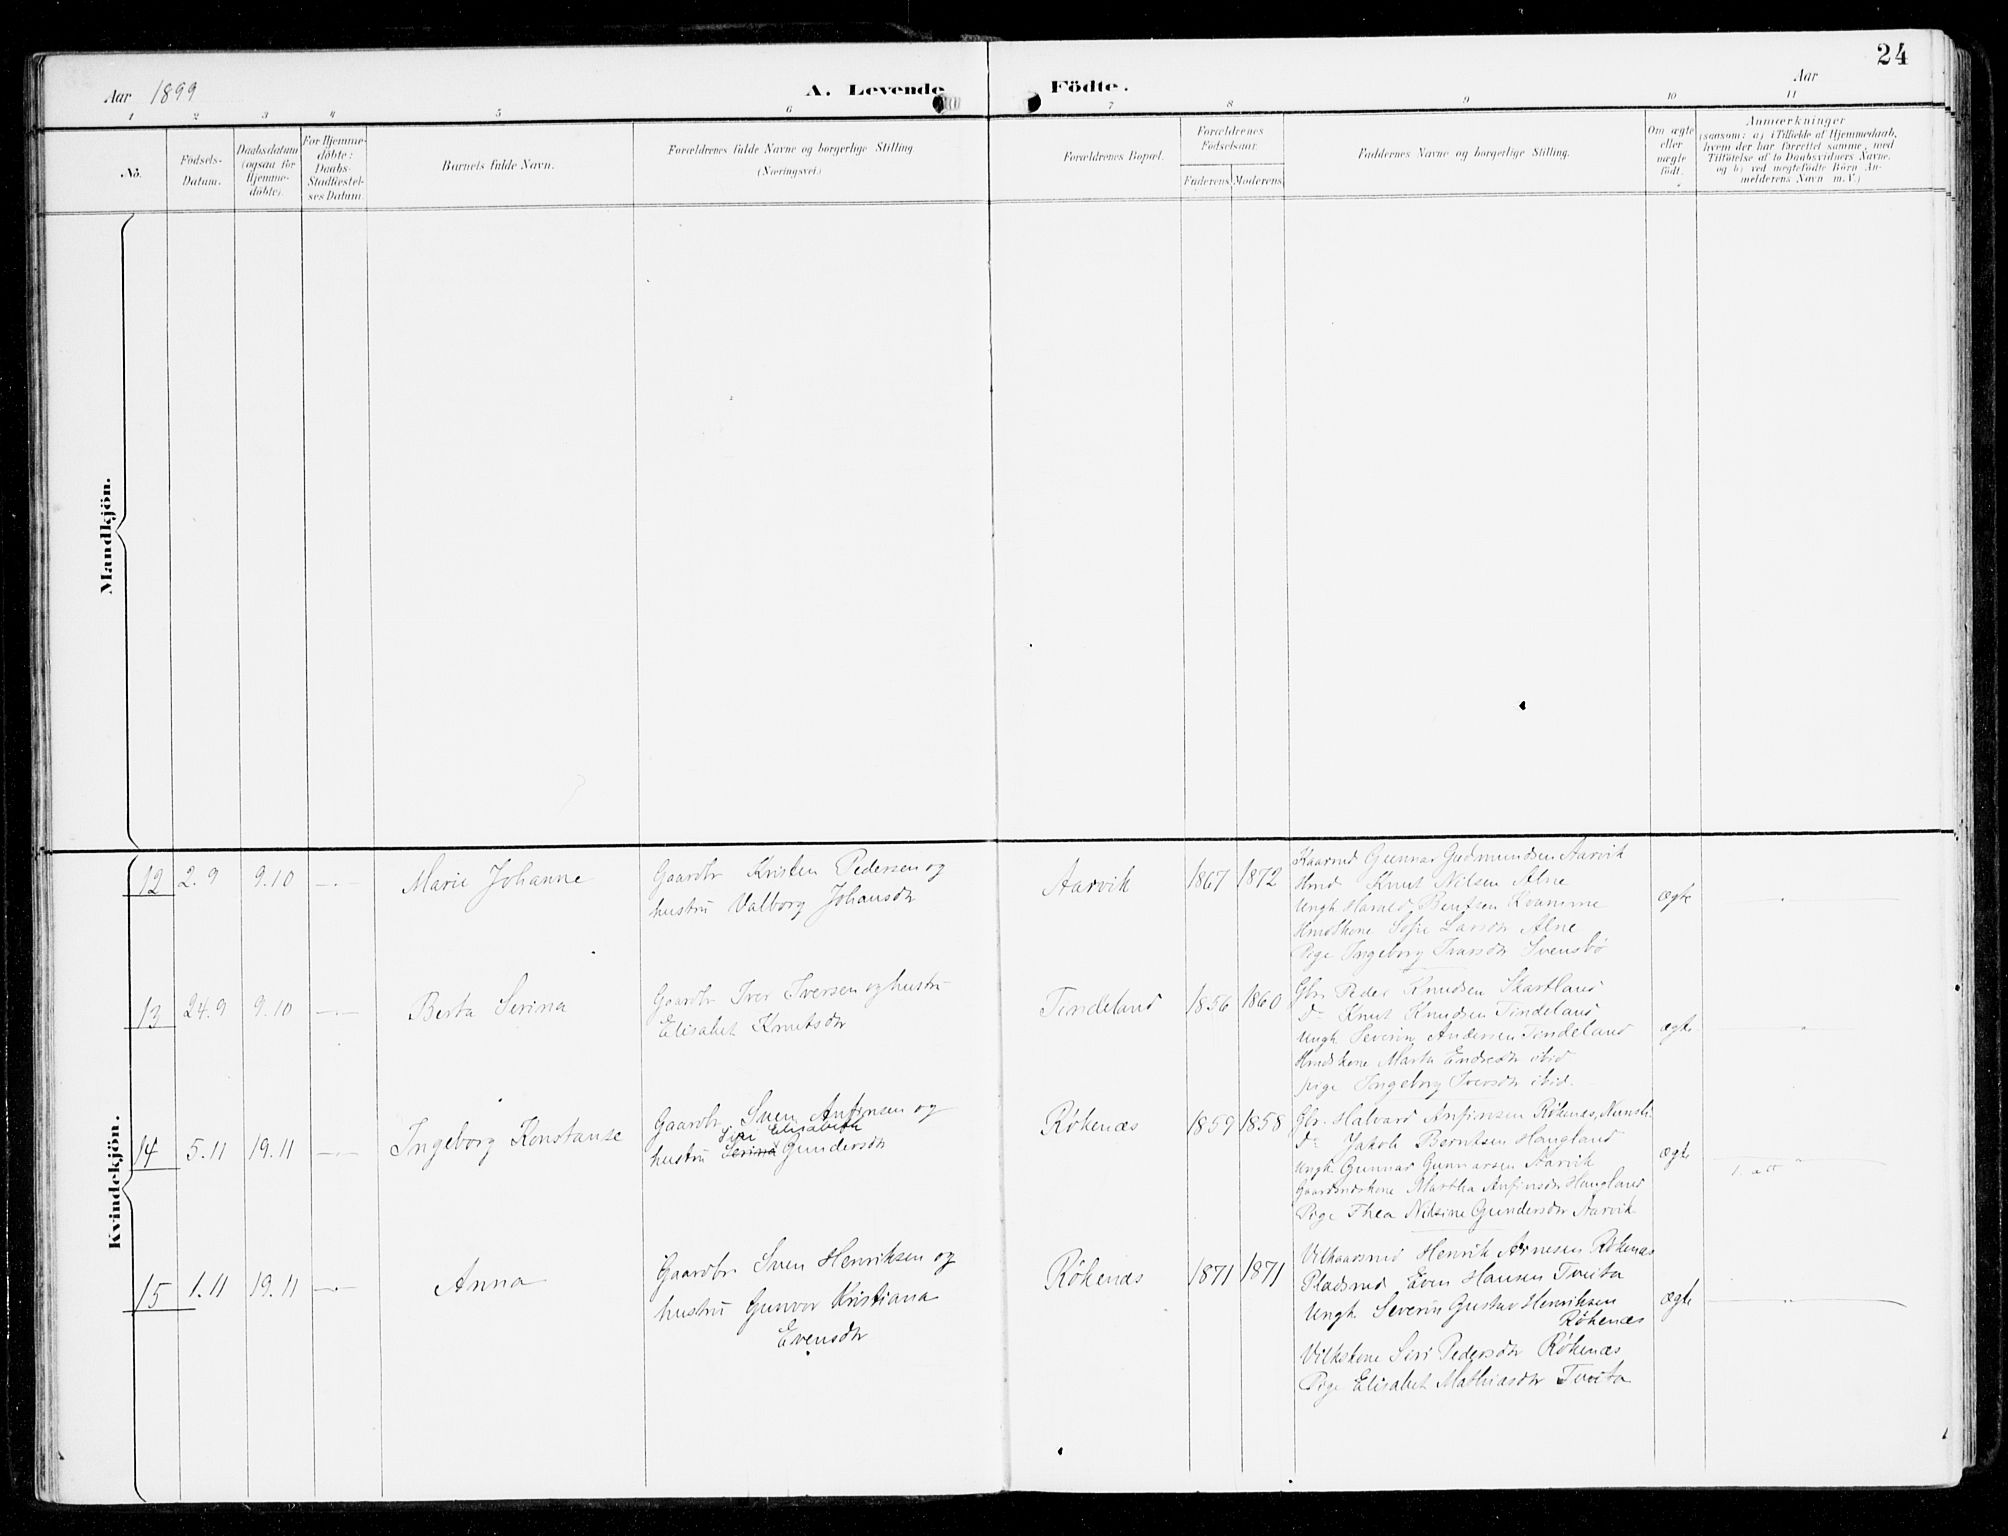 24
Aar 1899
A. Levende Födte.
Aar
1 2 3 4 5 6 7 8 9 10 11
No.
Födsels-
Datum.
Daabsdatum
(ogsaa for
Hjemme-
döbte).
For Hjemme-
döbte:
Daabs-
Stadfæstel-
ses Datum
Barnets fulde Navn.
Forældrenes fulde Navne og borgerlige Stilling.
(Næringsvei.)
Forældrenes Bopæl.
Forældrenes
Födselsaar.
Faderens Moderens
Faddernes Navne og borgerlige Stilling.
Om ægte
eller
uægte
födt.
Anmærkninger
(saasom: a) i Tilfælde af Hjemmedaab,
hvem der har forrettet samme, med
Tilföielse af to Daabsvidners Navne,
og b) ved uægtefödte Börn An-
melderens Navn m.V.)
Mandkjön.
Kvindekjön.
12 2.9 9.10 —"— Marie Johanne
Gaardbr Kristen Pedersen og
hustru Valborg Johansdtr
Aarvik 1867 1872
Gunnar Gudmundsen Aarvik
Hmd Knut Nilsen Alne
Ungk Harald Bentsen Kvamme
Hmdkone Sofie Larsdtr Alne
Pige Ingeborg Ivarsdtr Svensbö
ægte "
13 24.9 9.10 —"— Berta Serina
Gaardbr Iver Iversen og hustru
Elisabet Knutsdtr
Tindeland 1856 1860
Gbr. Peder Knudsen Skartland
Do Knut Knudsen Tindeland
Ungk Severin Andersen Tindeland
Hmdskone Marta Endresdtr ibid
pige Ingeborg Iversdtr ibid.
ægte "
14 5.11 19.11 —"— Ingeborg Konstanse
Gaardbr Sven Anfinsen og
Siri Elisabeth
hustru Serina Gundersdtr
Rökenæs 1859 1858
Gbr. Halvard Anfinsen Rökenæs,
Do Jakob Berntsen Haugland
Ungk Gunnar Gunnarsen Aarvik
Gaardmdskone Martha Anfinsdtr Haugland
Pige Thea Nilsine Gundersdtr Aarvik
ægte "
15 1.11 19.11 —"— Anna
Gaardbr Sven Henriksen og
hustru Gunvor Kristiana
Evensdtr
Rökenæs 1871 1871
Vilkaarsmd Henrik Arnesen Rökenæs
Pladsmd Even Hansen Tveita
Ungk. Severin Gustav Henriksen
Rökenæs
Vilkskone Siri Pedersdtr Rökenæs
Pige Elisabet Mathiasdtr Tveita
ægte "